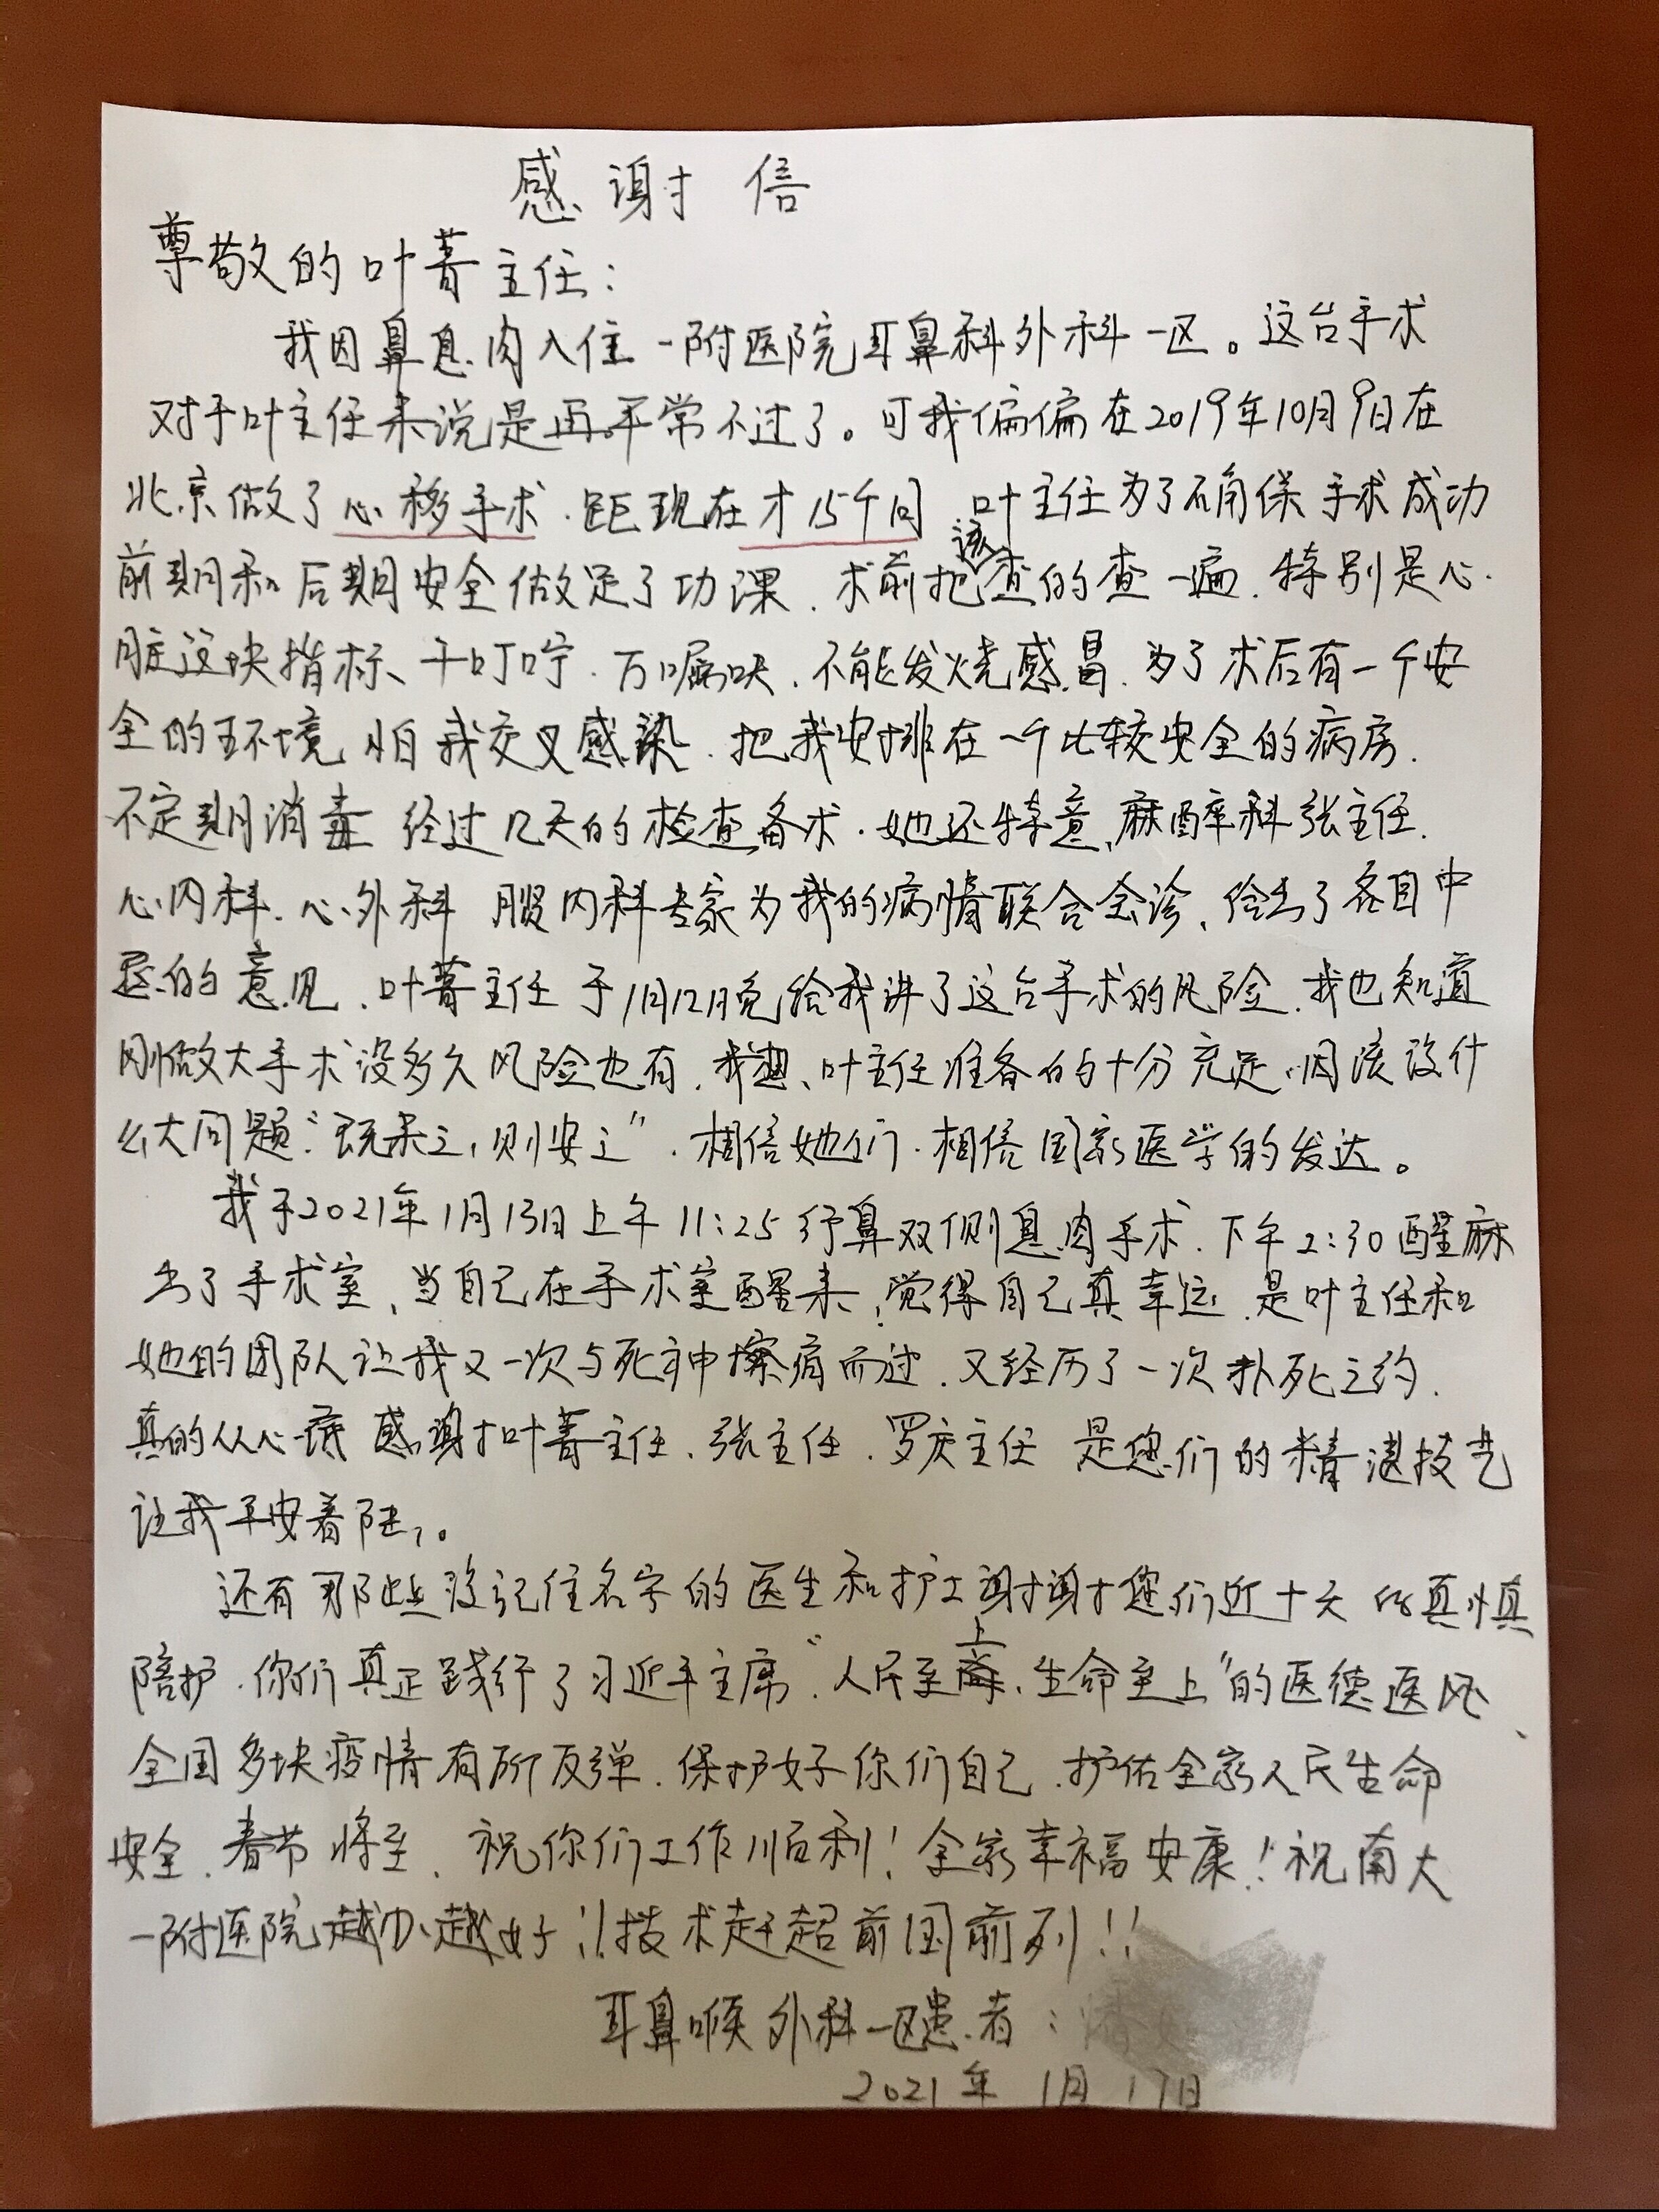 感谢信
尊敬的叶菁主任：
我因鼻息肉入住一附医院耳鼻科外科一区。这台手术
对于叶主任来说是再平常不过了。可我偏偏在2019年10月9日在
北京做了心移手术.距现在才15个月.叶主任为了确保手术成功
前期和后期安全做足了功课.术前把该查的查一遍.特别是心
脏这块指标、千叮咛.万嘱咐.不能发烧感冒.为了术后有一个安
全的环境怕我交叉感染.把我安排在一个比较安全的病房.
不定期消毒 经过几天的检查备术.她还特意、麻醉科张主任.
心内科.心外科 腹内科专家为我的病情联合会诊、给出了各自中
恳的意见.叶菁主任于1月12日晚给我讲了这台手术的风险.我也知道
刚做大手术没多久风险也有.我想、叶主任准备的十分充足.因该没什
么大问题“既来之,则安之”.相信她们.相信国家医学的发达。
我于2021年1月13日上午11:25行鼻双侧息肉手术.下午2:30醒麻
出了手术室、当自己在手术室醒来,觉得自己真幸运.是叶主任和
她的团队让我又一次与死神擦肩而过.又经历了一次扑死之约.
真的从心底感谢叶菁主任.张主任.罗庆主任 是您们的精湛技艺
让我平安着陆,。
还有那些没记住名字的医生和护士谢谢您们近十天的真慎
陪护.你们真正践行了习近平主席“人民至上、生命至上”的医德医风、
全国多块疫情有所反弹.保护好你们自己.护佑全家人民生命
安全.春节将至.祝你们工作顺利！全家幸福安康！祝南大
一附医院越办越好!!技术赶超前国前列!!
耳鼻喉外科一区患者:
2021年1月17日